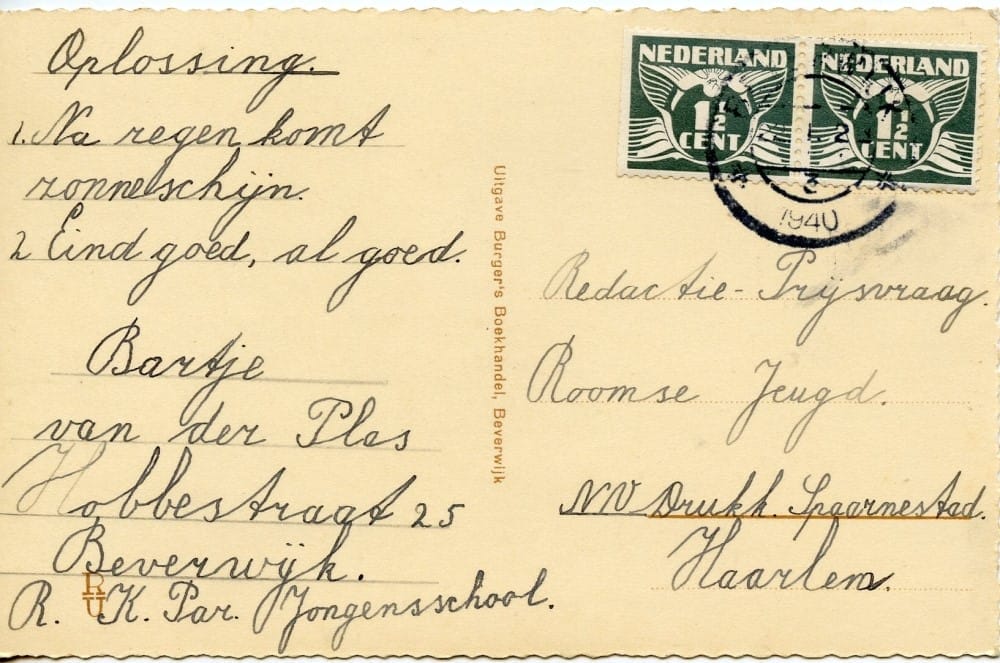 Oplossing.
1. Na regen komt
zonneschijn.
2 Eind goed, al goed.
Bartje
van der Plas
Hobbestraat 25
Beverwijk.
R. K. Par. Jongensschool.
RU
Uitgave Burger's Boekhandel, Beverwijk
NEDERLAND
1½
CENT
NEDERLAND
1½
CENT
3
1940
Redactie-Prijsvraag.
Roomse Jeugd.
NV Drukk. Spaarnestad.
Haarlem.